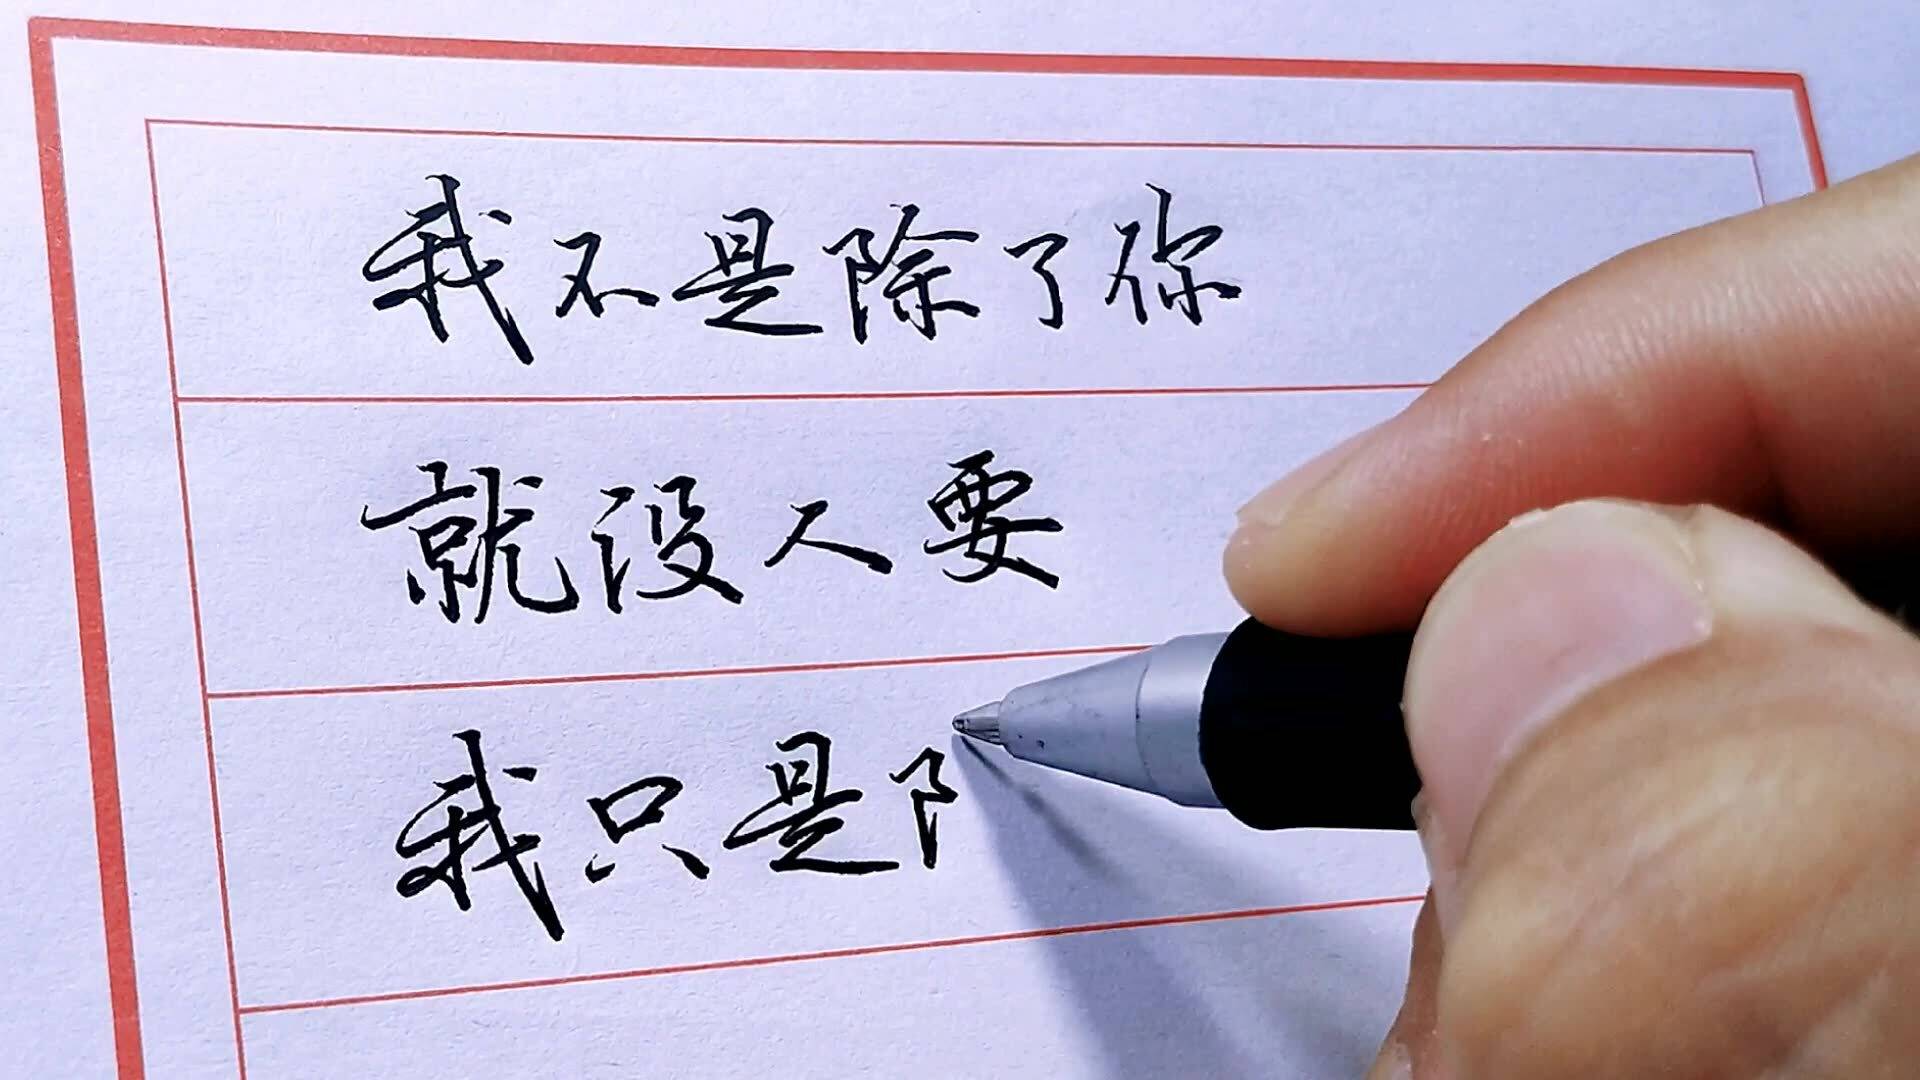 我不是除了你
就没人要
我只是阝